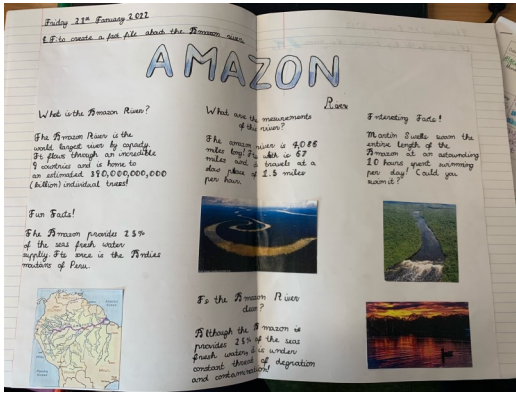 Friday 28th January 2022
L.I. to create a fact file about the Amazon river
AMAZON
River
What is the Amazon River?
The Amazon River is the
world largest river by capacity.
It flows through an incredible
9 countries and is home to
an estimated 390,000,000,000
(billion) individual trees!
Fun Facts!
The Amazon provides 25%
of the seas fresh water
supply. Its sorce is the Andies
moutains of Peru.
What are the mesurements
of the river?
The amazon river is 4,086
miles long! Its width is 67
miles and it travels at a
slow place of 1.5 miles
per hour.
Is the Amazon River
clean?
Although the Amazon is
provides 25% of the seas
fresh water, it is under
constant thread of degration
and contamination!
Interesting Facts!
Martin Swells swam the
entire length of the
Amazon at an astounding
10 hours spent swimming
per day! Could you
swim it?